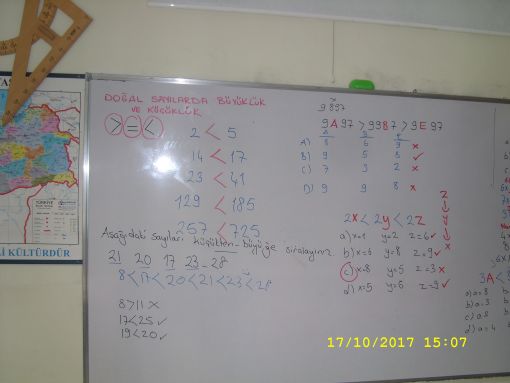 DOĞAL SAYILARDA BÜYÜKLÜK
VE KÜÇÜKLÜK
> = <
2 < 5
14 < 17
23 < 41
129 < 185
257 < 725
Aşağıdaki sayıları küçükten-büyüğe sıralayınız.
21 20 17 23 - 28
8 < 17 < 20 < 21 < 23 < 28
8 > 11 x
17 < 25 ✓
19 < 20 ✓
9897
9A97 > 9987 > 9E97
A)
B) 9
C) 7
D) 9 9 8 x
2x < 2y < 2z
a) x=1 y=2 z=6 ✓
b) x=6 y=8 z=9 ✓
c) x=8 y=5 z=3 x
d) x=5 y=6 z=9 ✓
3A <
a) a=8
b) a=3
c) a=8
d) a=4
TÜRKİYE
Lİ KÜLTÜRDÜR
17/10/2017 15:07